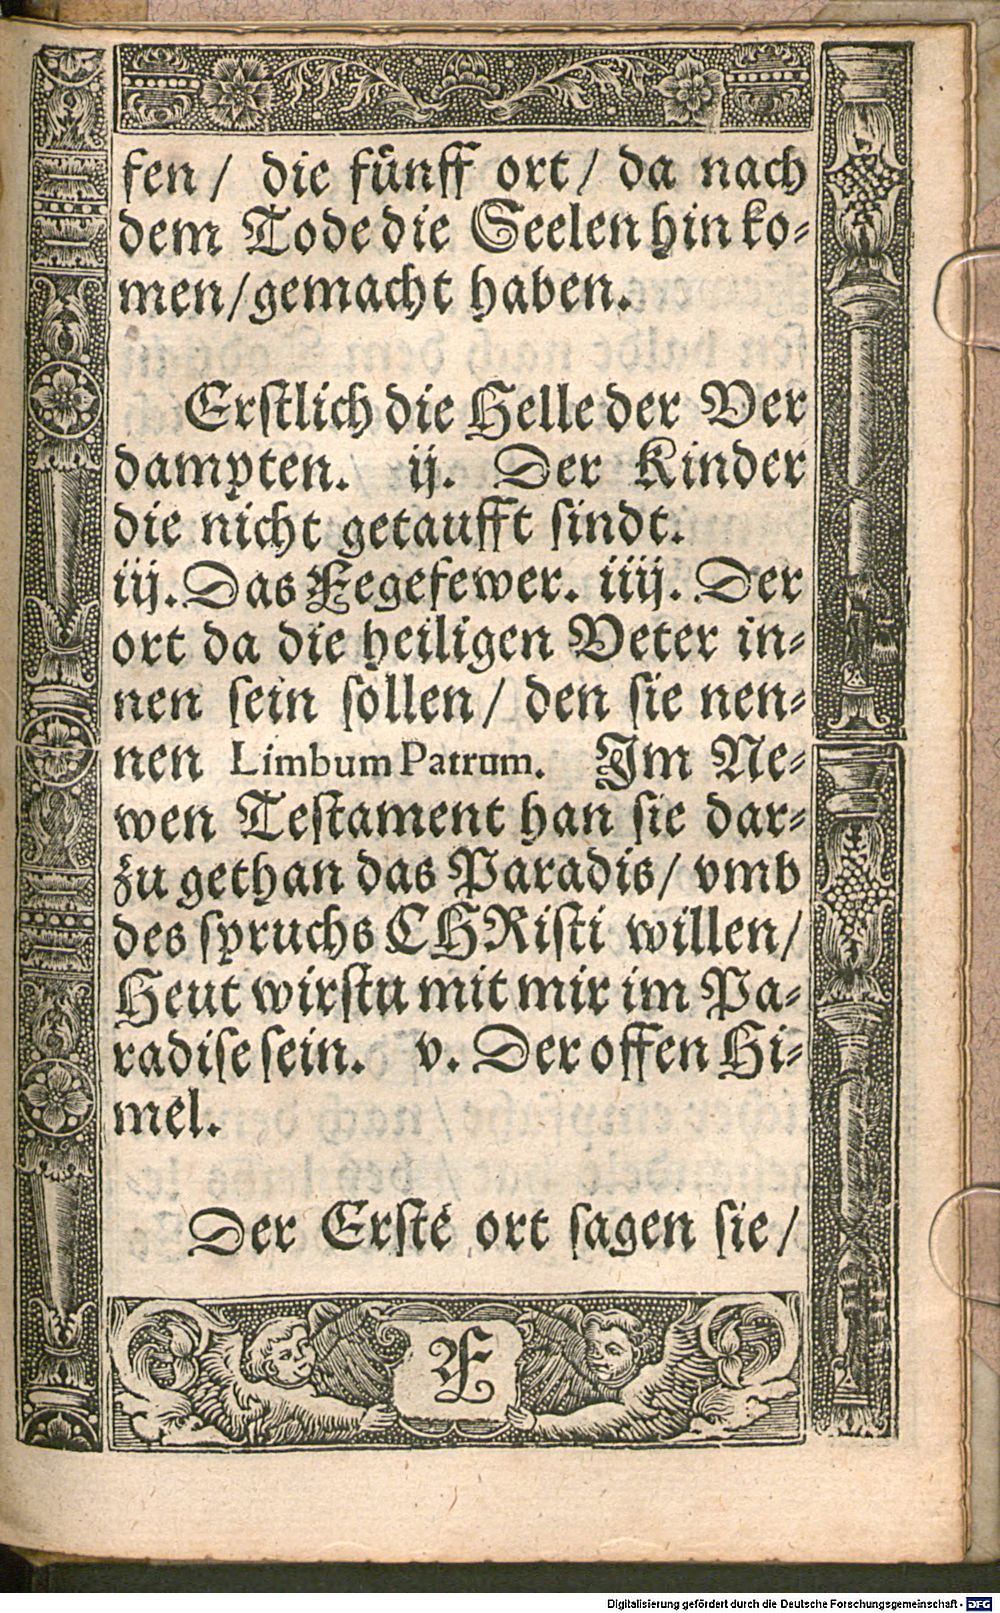 fen / die fünff ort / da nach
dem Tode die Seelen hin ko-
men / gemacht haben.
Erstlich die Helle der Ver
dampten. ij. Der Kinder
die nicht getaufft sindt.
iij. Das Fegefewer. iiij. Der
ort da die heiligen Veter in-
nen sein sollen / den sie nen-
nen Limbum Patrum. Im Ne-
wen Testament han sie dar-
zu gethan das Paradis / vmb
des spruchs CHRisti willen /
Heut wirstu mit mir im Pa-
radise sein. v. Der offen Hi-
mel.
Der Erste ort sagen sie /
F
Digitalisierung gefördert durch die Deutsche Forschungsgemeinschaft - DFG